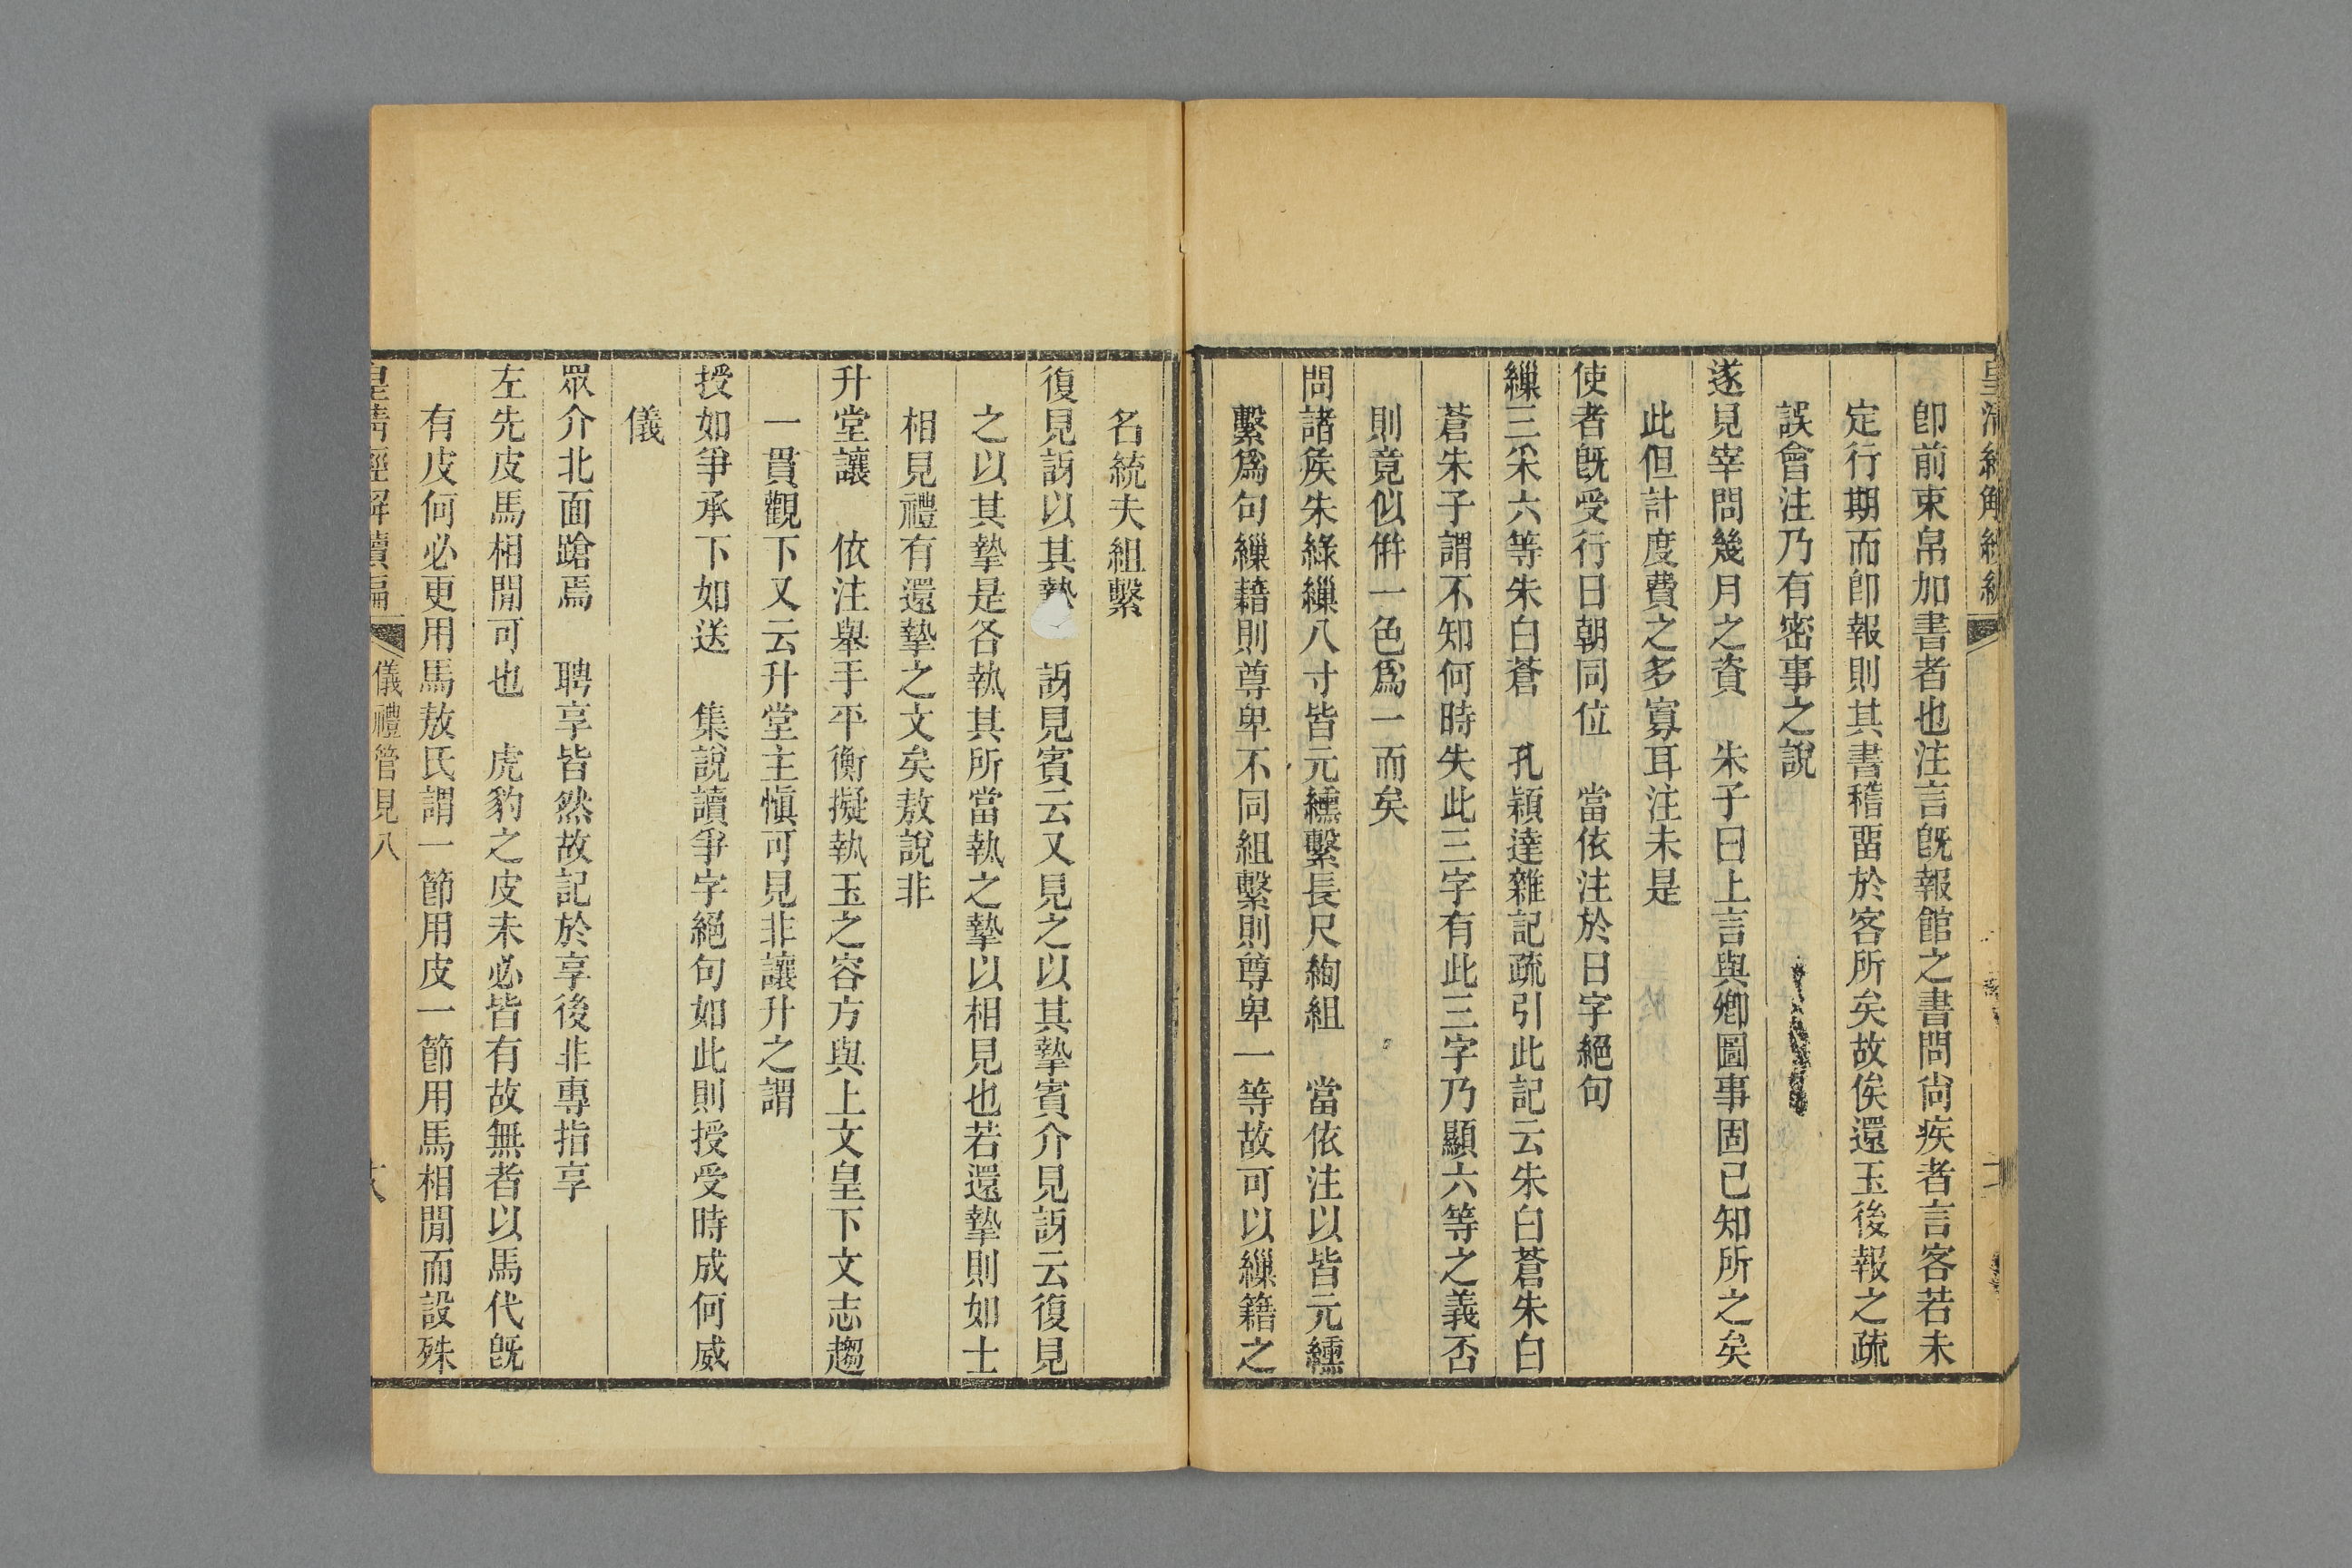 卽前束帛加書者也注言旣報館之書問尙疾者言客若未
定行期而卽報則其書稽畱於客所矣故俟還玉後報之疏
誤會注乃有密事之說
遂見宰問幾月之資　朱子曰上言與卿圖事固已知所之矣
此但計度費之多寡耳注未是
使者旣受行日朝同位　當依注於日字絕句
繅三采六等朱白蒼　孔穎達雜記疏引此記云朱白蒼朱白
蒼朱子謂不知何時失此三字有此三字乃顯六等之義否
則竟似倂一色爲一而矣
問諸侯朱綠繅八寸皆元纁繫長尺絢組　當依注以皆元纁
繫爲句繅藉則尊卑不同組繫則尊卑一等故可以繅籍之
名統夫組繫
復見訝以其摯　訝見賓云又見之以其摯賓介見訝云復見
之以其摯是各執其所當執之摯以相見也若還摯則如士
相見禮有還摯之文矣敖說非
升堂讓　依注舉手平衡擬執玉之容方與上文皇下文志趨
一貫觀下又云升堂主愼可見非讓升之謂
授如爭承下如送　集說讀爭字絕句如此則授受時成何威
儀
眾介北面蹌焉　聘享皆然故記於享後非專指享
左先皮馬相閒可也　虎豹之皮未必皆有故無者以馬代旣
有皮何必更用馬敖氏謂一節用皮一節用馬相閒而設殊
皇淸經解續編
儀禮管見八